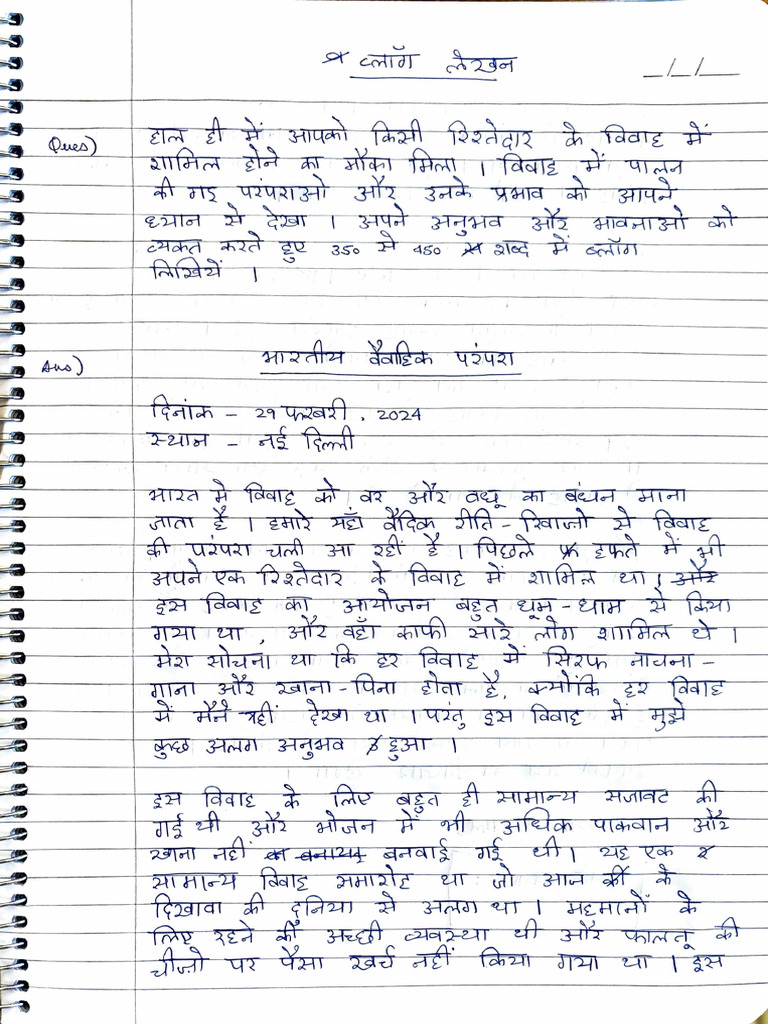 ब्लॉग लेखन
_/_/_
Ques) हाल ही में आपको किसी रिश्तेदार के विवाह में
शामिल होने का मौका मिला । विवाह में पालन
की गइ परंपराओ और उनके प्रभाव को आपने
ध्यान से देखा । अपने अनुभव और भावनाओ को
व्यक्त करते हुए 350 से 450 शब्द में ब्लॉग
लिखियें ।
Ans) भारतीय वैवाहिक परंपरा
दिनांक - 29 फरबरी, 2024
स्थान - नई दिल्ली
भारत मे विवाह को वर और वधू का बंधन माना
जाता है । हमारे यहाँ वैदिक रीति-रिवाजो से विवाह
की परंपरा चली आ रहीं है । पिछले हफ्ते में भी
अपने एक रिश्तेदार के विवाह में शामिल था । और
इस विवाह का आयोजन बहुत धूम-धाम से किया
गया था , और वहाँ काफी सारे लोग शामिल थे ।
मेरा सोचना था कि हर विवाह में सिरफ नाचना-
गाना और खाना-पिना होता है, क्योंकि हर विवाह
में मैने यहीं देखा था । परंतु इस विवाह में मुझे
कुछ अलग अनुभव हुआ ।
इस विवाह के लिए बहुत ही सामान्य सजावट की
गई थी और भोजन में भी अधिक पाकवान और
खाना नहीं बनवाई गई थी । यह एक
सामान्य विवाह समारोह था जो आज के
दिखावा की दुनिया से अलग था । महमानों के
लिए रहने की अच्छी व्यवस्था थी और फालतू की
चीजो पर पैसा खर्च नहीं किया गया था । इस